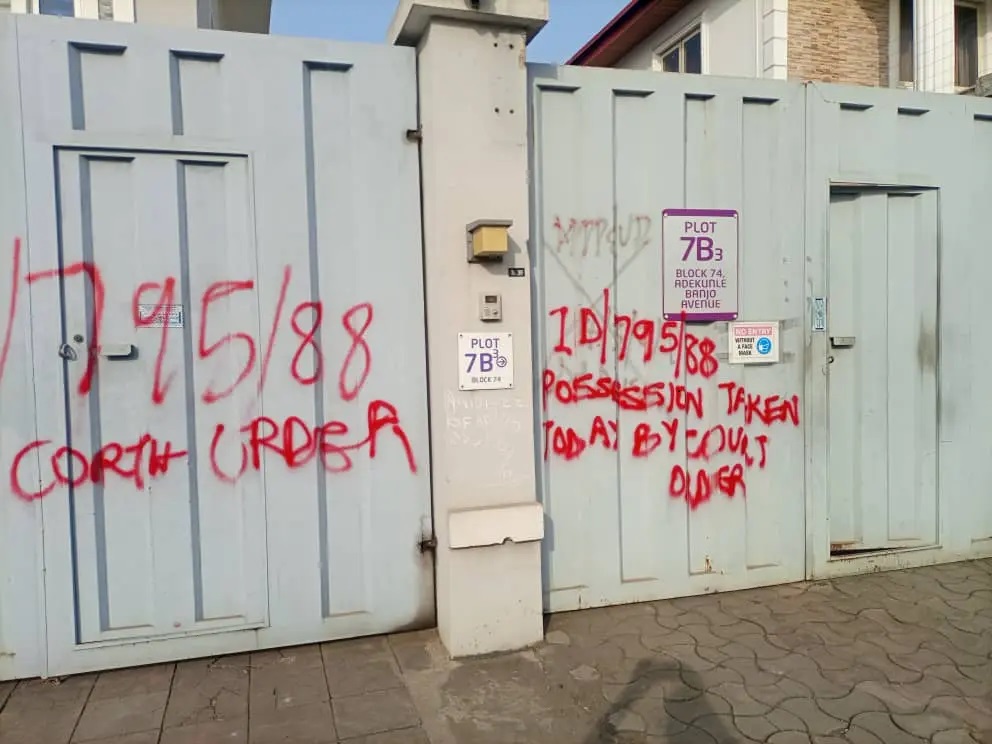 /795/88
CORTH ORDER
PLOT
7B3
BLOCK 74
PLOT
7B3
BLOCK 74,
ADEKUNLE
BANJO
AVENUE
NO ENTRY
WITHOUT
A FACE
MASK
ID/795/88
POSSESSION TAKEN
TODAY BY COURT
ORDER